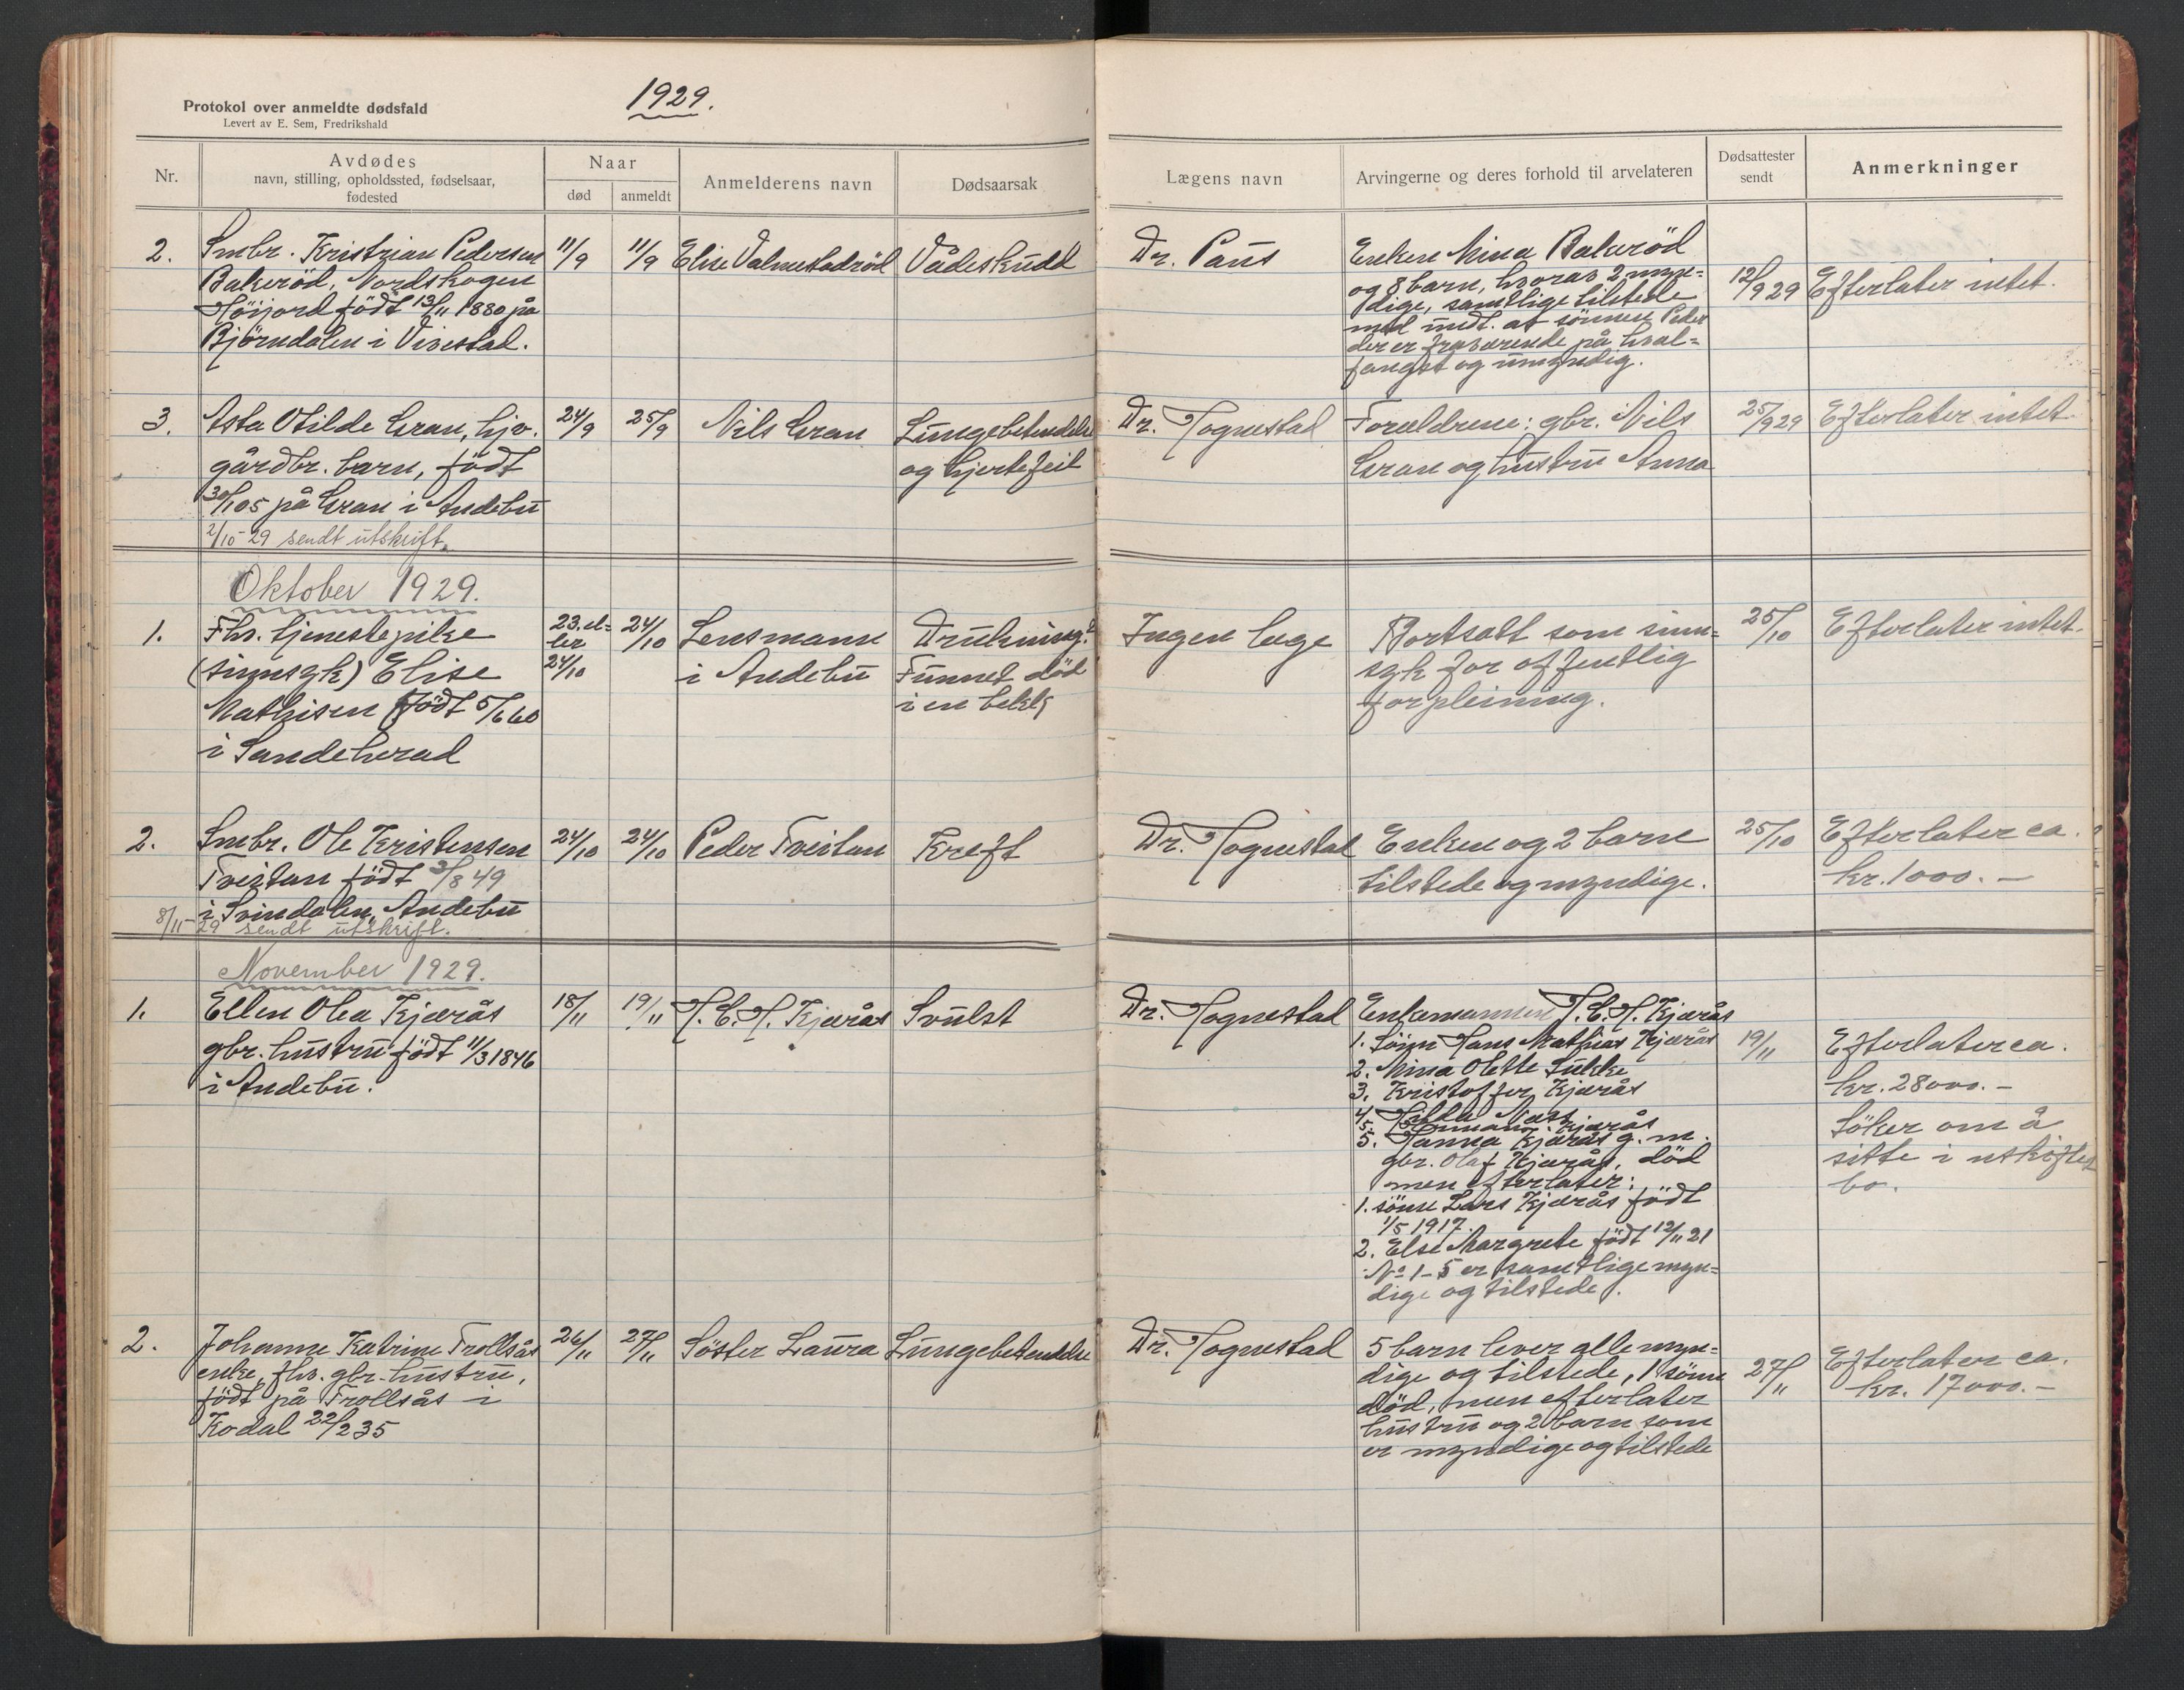 1929.
Protokol over anmeldte dødsfald
Levert av E. Sem, Fredrikshald
Nr.
Avdødes
navn, stilling, opholdssted, fødselsaar,
fødested
Naar
død
anmeldt
Anmelderens navn
Dødsaarsak
Lægens navn
Arvingerne og deres forhold til arvelateren
Dødsattester
sendt
Anmerkninger
2.
Smbr. Kristian Pedersen
Bakeröd, Nordskogen
Höijord födt 13/11 1880 på
Björndalen i Vivestad.
11/9
11/9
Elise Valmestadröd
Vådeskudd
Dr. Paus
Enken Mina Bakeröd
og 8 barn, hvorav 2 myn=
dige, samtlige tilstede
med undt. at sönnen Peder
der er fraværende på hval=
fangst og umyndig.
12/9 29
Efterlater intet.
3.
Asta Otilde Gran, hjv.
gårdbr. barn, födt
30/1 05 på Gran i Andebu
2/10-29 sendt utskrift.
24/9
25/9
Nils Gran
Lungebetendelse
og hjertefeil
Dr. Tognestad
Foreldrene: gbr. Nils
Gran og hustru Anna
25/9 29
Efterlater intet.
Oktober 1929.
1.
Fhv. tjenestepike
(sinnsyk) Elise
Mathisen födt 5/6 60
i Sandeherad
23. el=
ler
24/10
24/10
Lensmann
i Andebu
Drukning?
Funnet död
i en bekk
Ingen lege
Bortsatt som sinn=
syk for offentlig
forpleining.
25/10
Efterlater intet.
2.
Smbr. Ole Kristensen
Tveitan födt 3/8 49
i Svindalen, Andebu
8/11-29 sendt utskrift.
24/10
24/10
Peder Tveitan
Kreft
Dr. Tognestad
Enken og 2 barn
tilstede og myndige.
25/10
Efterlater ca.
kr. 1000.-
November 1929.
1.
Ellen Olea Kjærås
gbr. hustru födt 11/3 1846
i Andebu.
18/11
19/11
H. C. H. Kjærås
Svulst
Dr. Tognestad
Enkemannen H. C. H. Kjærås
1. Sönn Hans Mathias Kjærås
2. Mina Olette Sukke
3. Kristoffer Kjærås
4. Hilda Nass
5. Kjærås
5. Hanna Kjærås g. m.
gbr. Olaf Kjærås, död
men efterlater:
1. sönn Lars Kjærås födt
1/5 1917.
2. Else Margrete födt 12/11 21
No 1-5 er samtlige myn=
dige og tilstede.
19/11
Efterlater ca.
kr. 28000.-
Söker om å
sitte i uskiftet
bo.
2.
Johanne Katrine Trollsås
enke, fhv. gbr. hustru,
födt på Trollsås i
Kodal 22/2 35
26/11
27/11
Söster Laura
Lungebetendelse
Dr. Tognestad
5 barn lever alle myn=
dige og tilstede, 1 sönn
död, men efterlater
hustru og 2 barn som
er myndige og tilstede
27/11
Efterlater ca.
kr. 17000.-